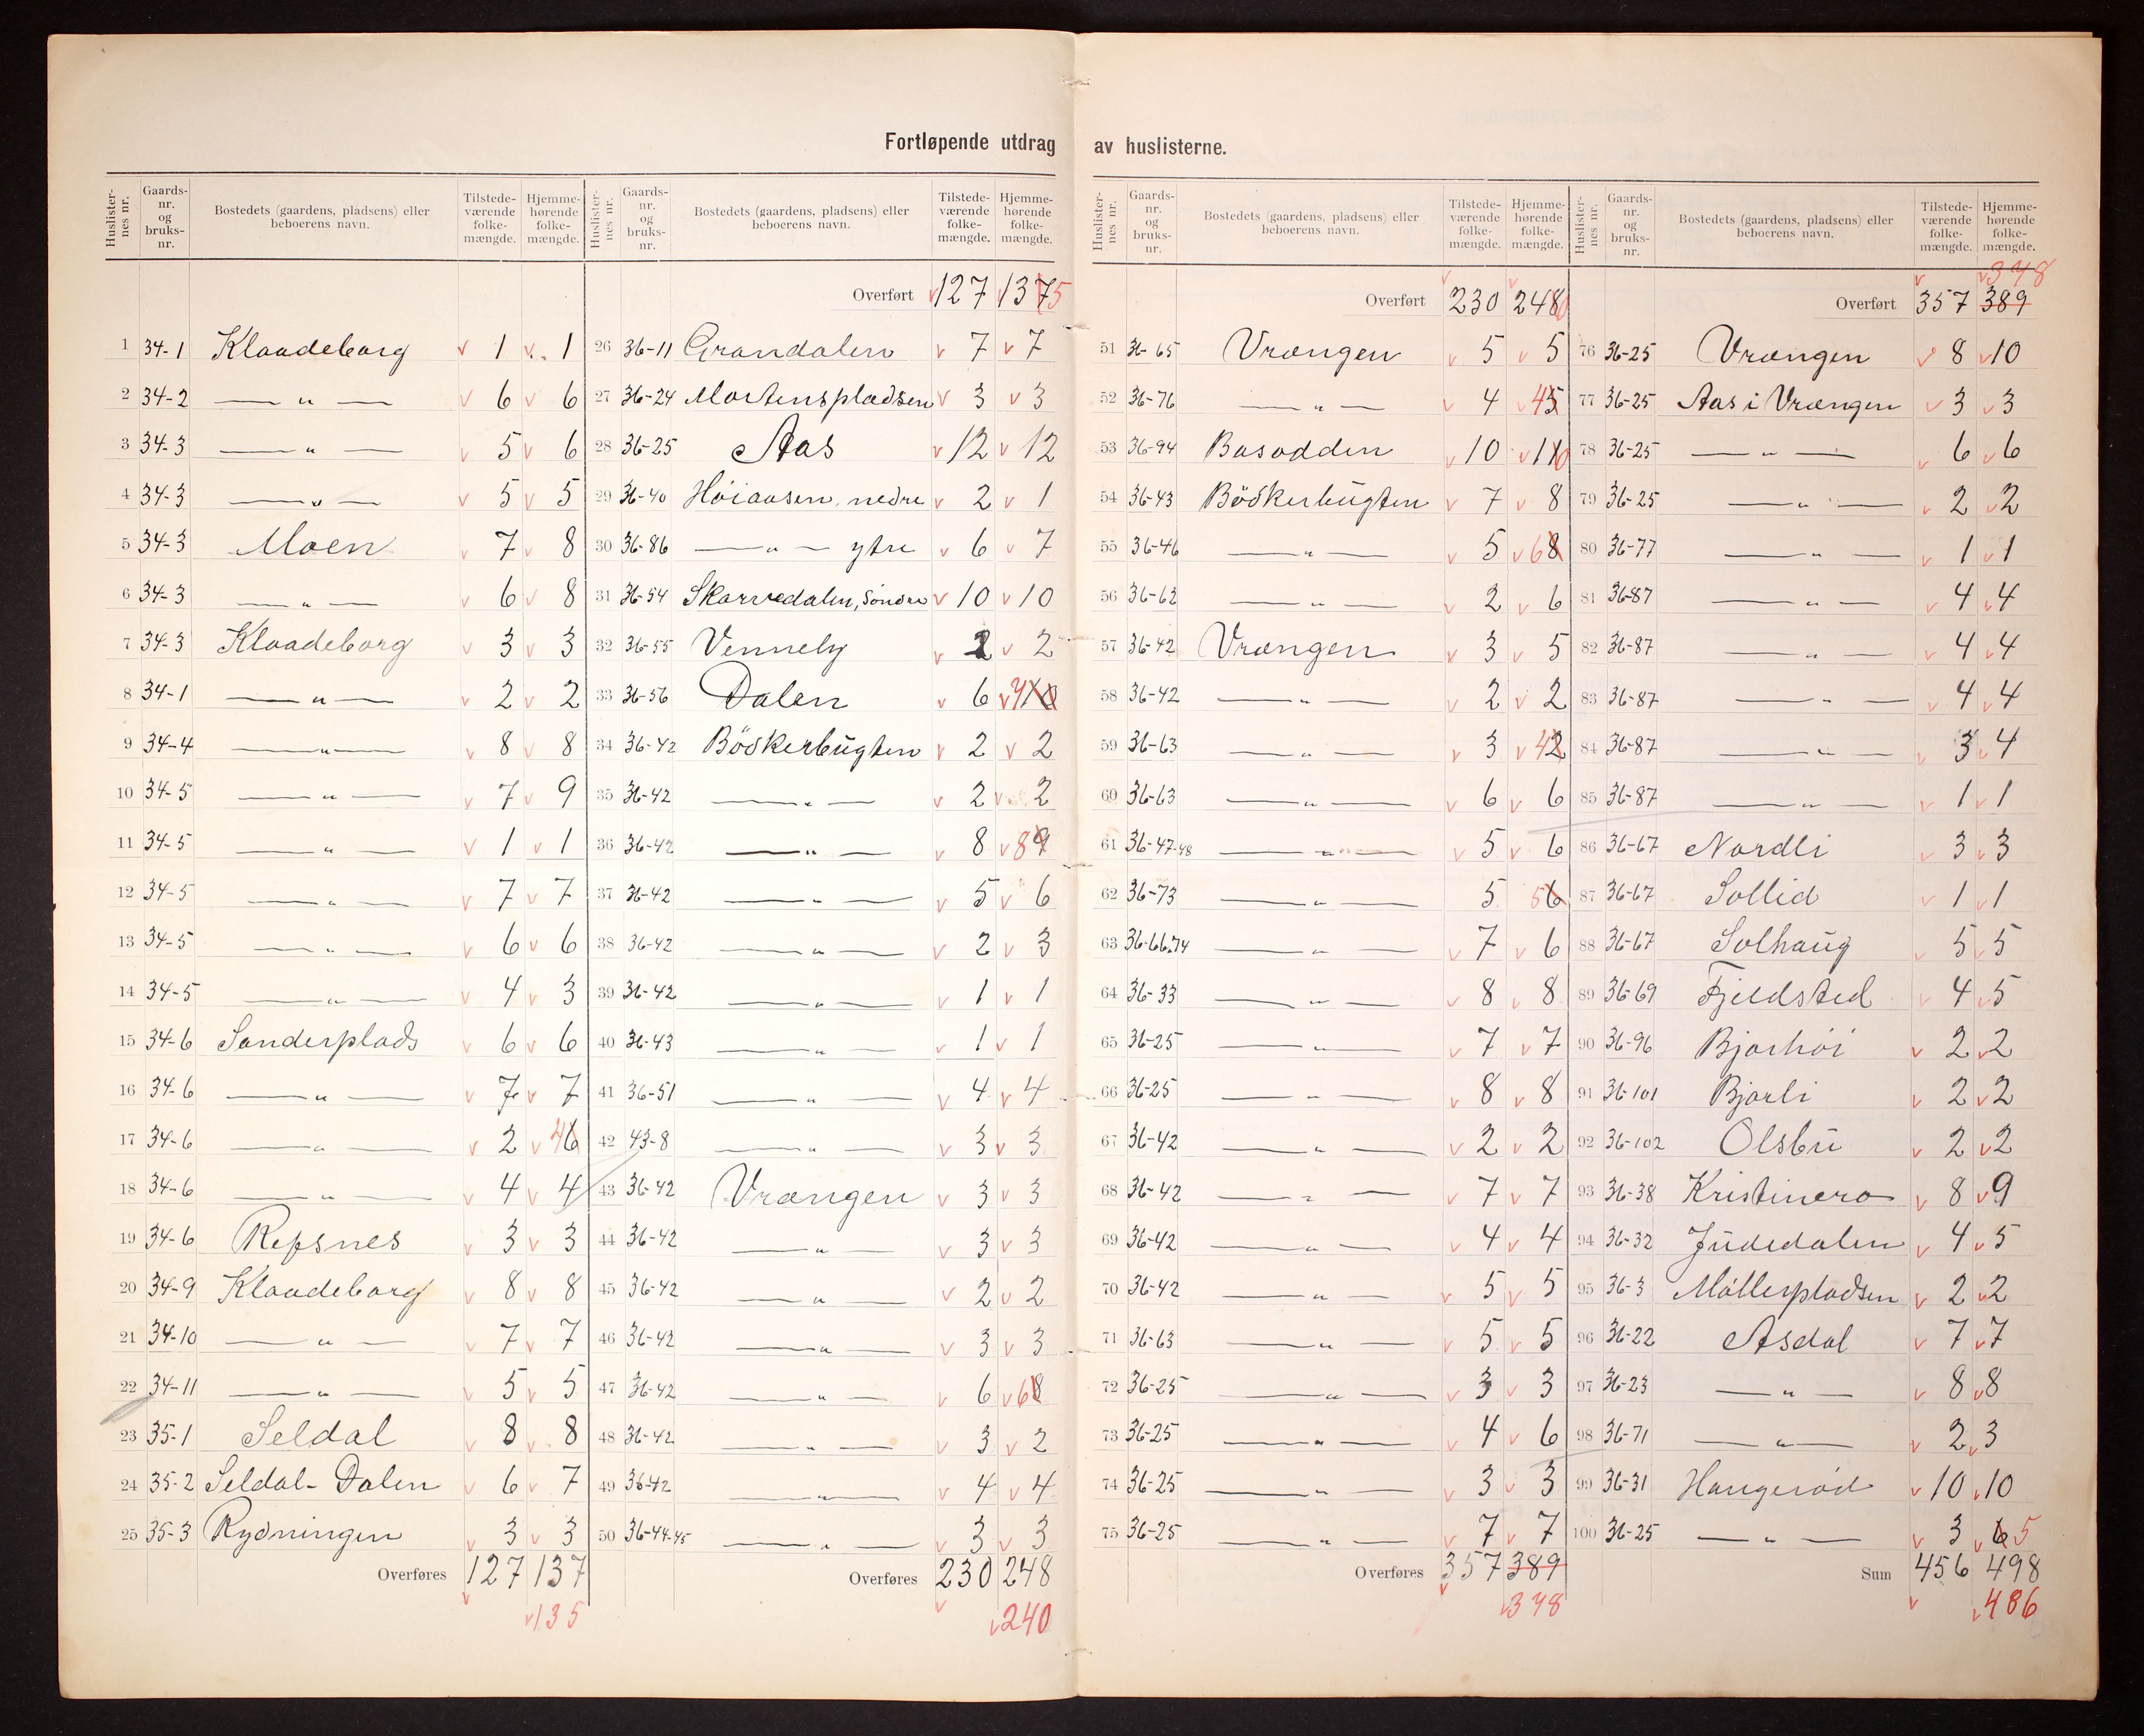 Fortløpende utdrag av huslisterne.
Huslister-nes nr. Gaards-nr. og bruks-nr. Bostedets (gaardens, pladsens) eller beboerens navn. Tilstede-værende folke-mængde. Hjemme-hørende folke-mængde.
1 34-1 Klaadeborg 1 1
2 34-2 —„— 6 6
3 34-3 —„— 5 6
4 34-3 —„— 5 5
5 34-3 Moen 7 8
6 34-3 —„— 6 8
7 34-3 Klaadeborg 3 3
8 34-1 —„— 2 2
9 34-4 —„— 8 8
10 34-5 —„— 7 9
11 34-5 —„— 1 1
12 34-5 —„— 7 7
13 34-5 —„— 6 6
14 34-5 —„— 4 3
15 34-6 Sanderplads 6 6
16 34-6 —„— 7 7
17 34-6 —„— 2 46
18 34-6 —„— 4 4
19 34-6 Refsnes 3 3
20 34-9 Klaadeborg 8 8
21 34-10 —„— 7 7
22 34-11 —„— 5 5
23 35-1 Seldal 8 8
24 35-2 Seldal-Dalen 6 7
25 35-3 Rydningen 3 3
Overføres 127 137
135
Huslister-nes nr. Gaards-nr. og bruks-nr. Bostedets (gaardens, pladsens) eller beboerens navn. Tilstede-værende folke-mængde. Hjemme-hørende folke-mængde.
Overført 127 1375
26 36-11 Grandalen 7 7
27 36-24 Mortenspladsen 3 3
28 36-25 Aas 12 12
29 36-40 Höiaasen, nedre 2 1
30 36-86 —„— ytre 6 7
31 36-54 Skarvedalen, Söndre 10 10
32 36-55 Venneby 2 2
33 36-56 Dalen 6
34 36-42 Bödkerbugten 2 2
35 36-42 —„— 2 2
36 36-42 —„— 8 89
37 36-42 —„— 5 6
38 36-42 —„— 2 3
39 36-42 —„— 1 1
40 36-43 —„— 1 1
41 36-51 —„— 4 4
42 43-8 —„— 3 3
43 36-42 Vrængen 3 3
44 36-42 —„— 3 3
45 36-42 —„— 2 2
46 36-42 —„— 3 3
47 36-42 —„— 6 68
48 36-42 —„— 3 2
49 36-42 —„— 4 4
50 36-44-45 —„— 3 3
Overføres 230 248
240
Huslister-nes nr. Gaards-nr. og bruks-nr. Bostedets (gaardens, pladsens) eller beboerens navn. Tilstede-værende folke-mængde. Hjemme-hørende folke-mængde.
Overført 230 2480
51 36-65 Vrængen 5 5
52 36-76 —„— 4 45
53 36-94 Basodden 10 110
54 36-43 Bödkerbugten 7 8
55 36-46 —„— 5 68
56 36-62 —„— 2 6
57 36-42 Vrængen 3 5
58 36-42 —„— 2 2
59 36-63 —„— 3 42
60 36-63 —„— 6 6
61 36-47-48 —„— 5 6
62 36-73 —„— 5 56
63 36-66.74 —„— 7 6
64 36-33 —„— 8 8
65 36-25 —„— 7 7
66 36-25 —„— 8 8
67 36-42 —„— 2 2
68 36-42 —„— 7 7
69 36-42 —„— 4 4
70 36-42 —„— 5 5
71 36-63 —„— 5 5
72 36-25 —„— 3 3
73 36-25 —„— 4 6
74 36-25 —„— 3 3
75 36-25 —„— 7 7
Overføres 357 389
378
Huslister-nes nr. Gaards-nr. og bruks-nr. Bostedets (gaardens, pladsens) eller beboerens navn. Tilstede-værende folke-mængde. Hjemme-hørende folke-mængde.
378
Overført 357 389
76 36-25 Vrængen 8 10
77 36-25 Aas i Vrængen 3 3
78 36-25 —„— 6 6
79 36-25 —„— 2 2
80 36-77 —„— 1 1
81 36-87 —„— 4 4
82 36-87 —„— 4 4
83 36-87 —„— 4 4
84 36-87 —„— 3 4
85 36-87 —„— 1 1
86 36-67 Nordli 3 3
87 36-67 Sollid 1 1
88 36-67 Solhaug 5 5
89 36-69 Fjeldsted 4 5
90 36-96 Bjarhöi 2 2
91 36-101 Bjarli 2 2
92 36-102 Olsbu 2 2
93 36-38 Kristinero 8 9
94 36-32 Judedalen 4 5
95 36-3 Möllerpladsen 2 2
96 36-22 Asdal 7 7
97 36-23 —„— 8 8
98 36-71 —„— 2 3
99 36-31 Haugeröd 10 10
100 36-25 —„— 3 65
Sum 456 498
486